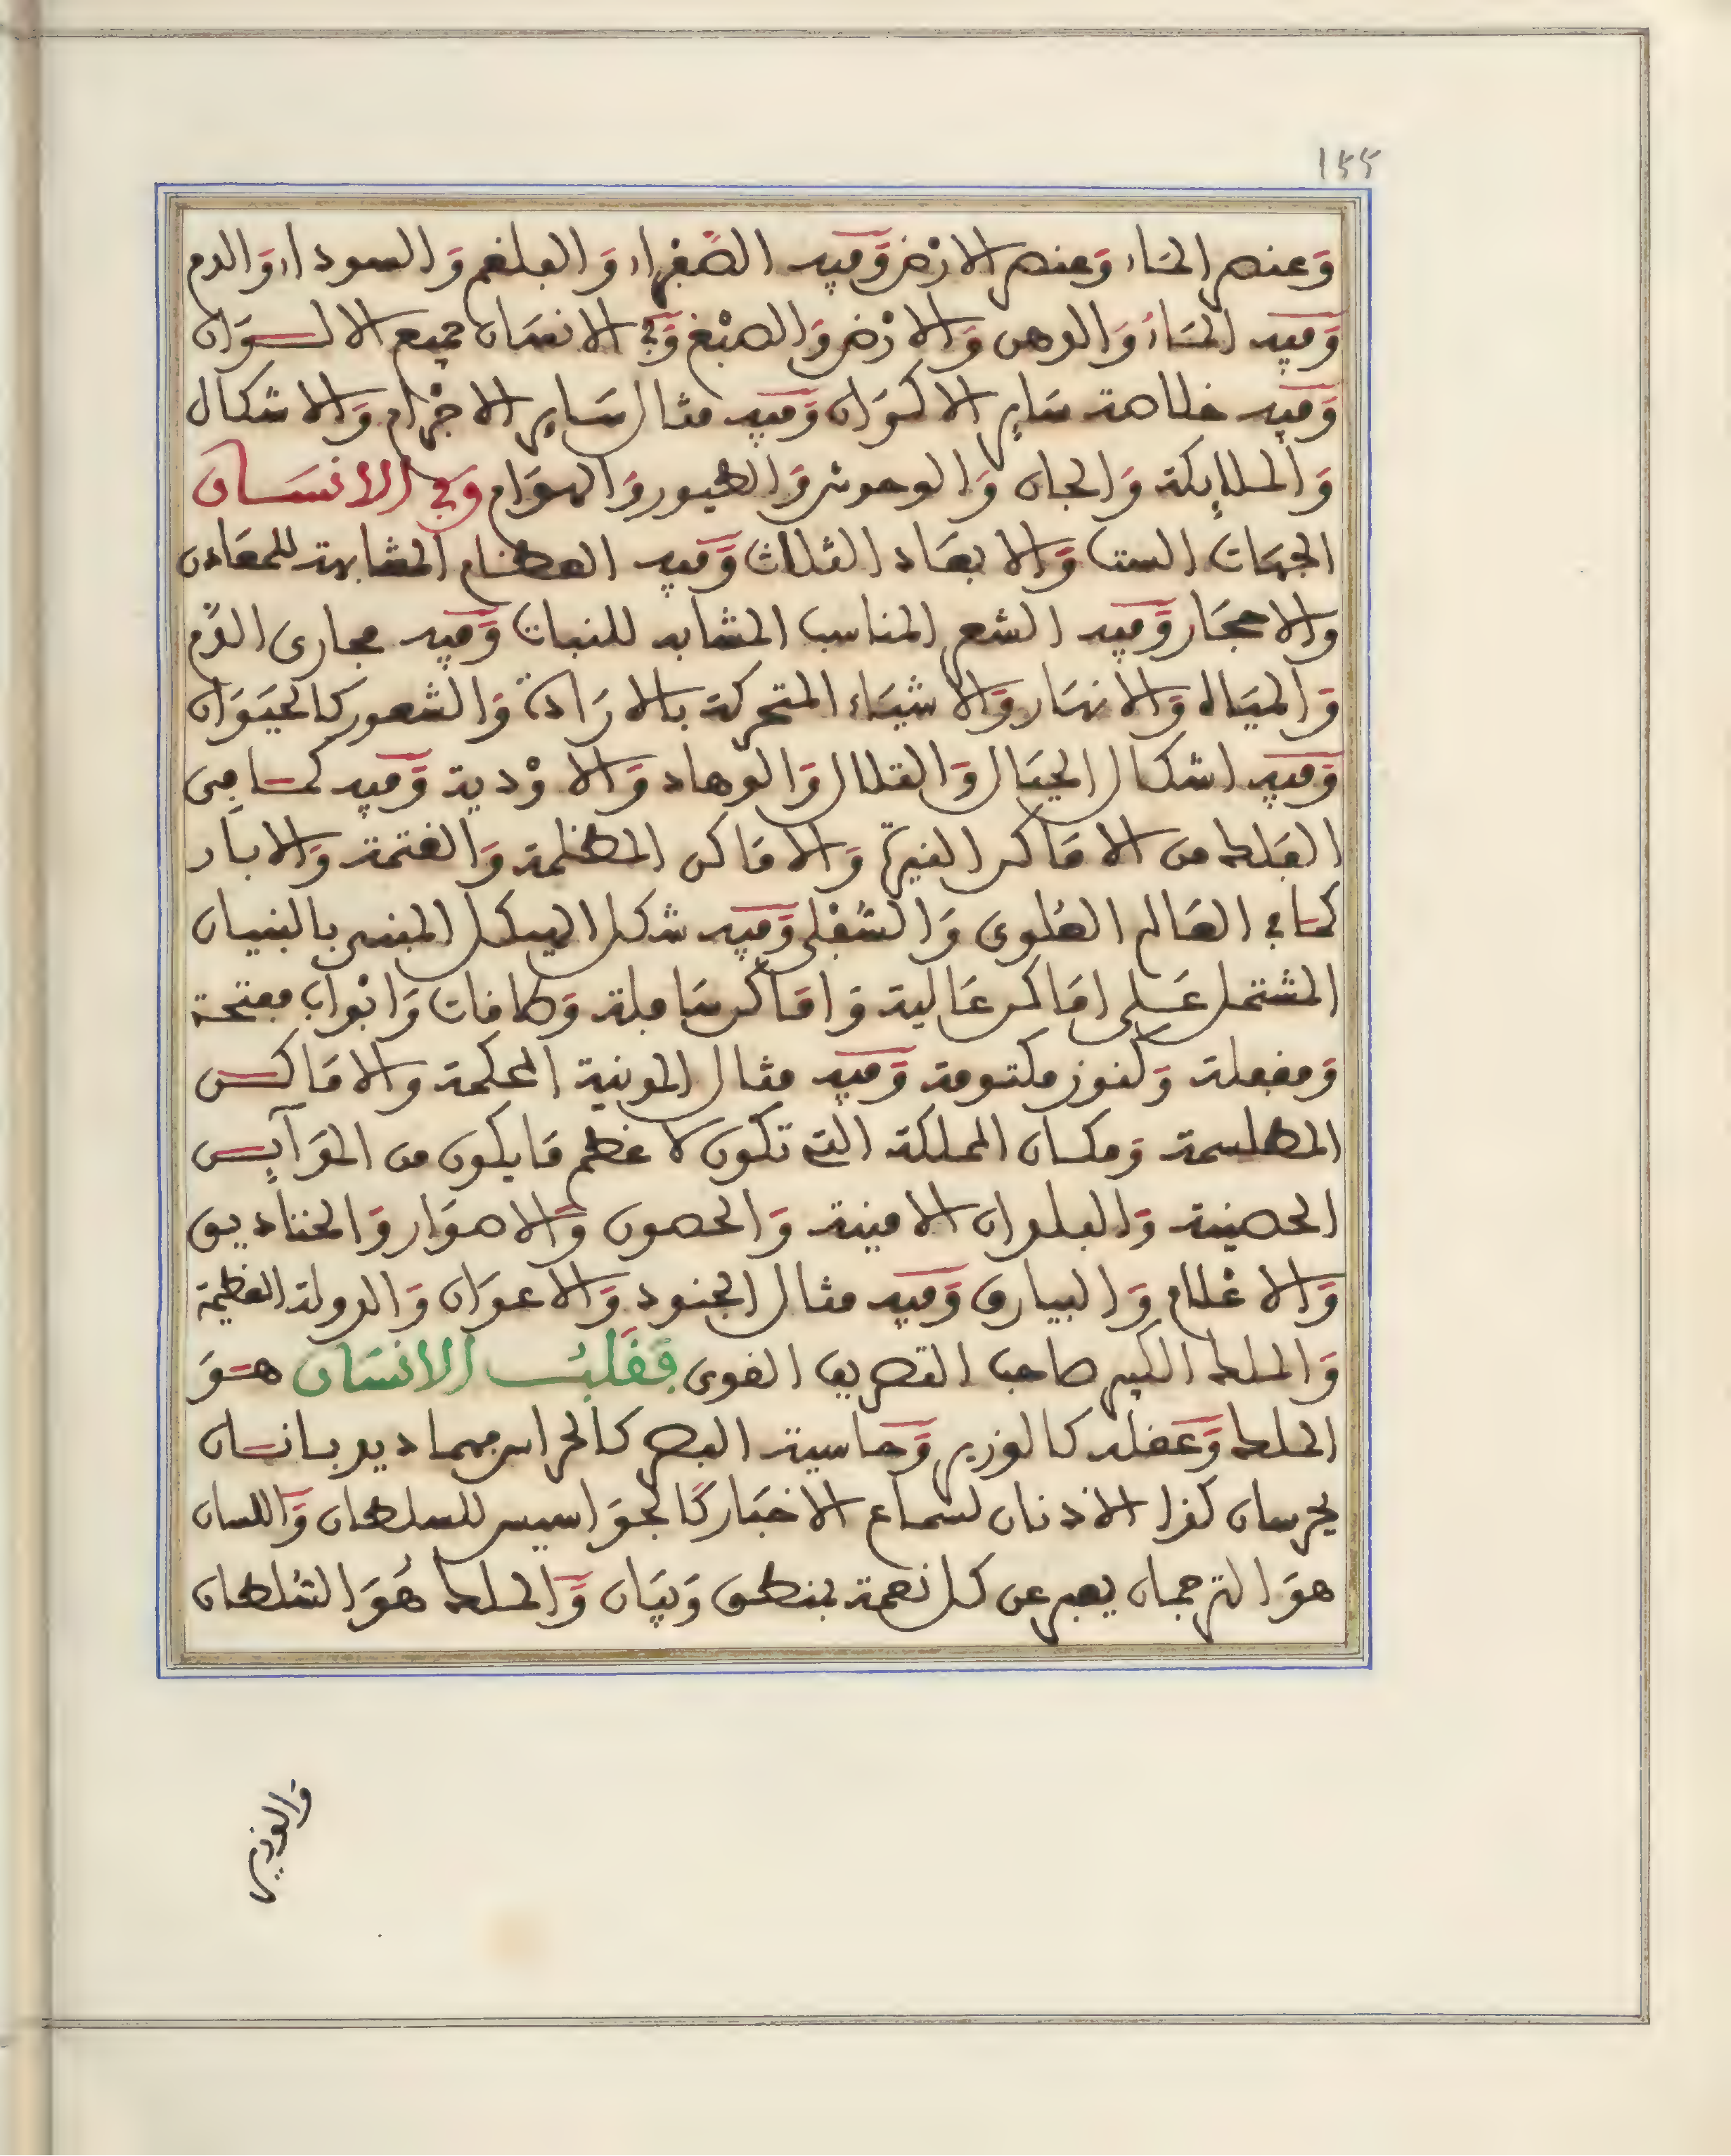 ١٤٤
وَعنصر المَاء وَعنصر الارْض وَّفيه الصَّفراء وَالبلغم وَالسوداء وَالدم
وَّفيه المَاءُ وَالدهن وَالارْض وَالصبْغ وَّفي الانسَان جميع الالــوَان
وَّفيه خلاصة سَاير الاكوَان وَّفيه مثال سَاير الاجْرام وَالاشكال
وَالملايكة وَالجان وَالوحوش وَالطيور وَالهوَام وَفي الانسَــان
الجهَات الست وَالابعَاد الثلاث وَّفيه العظــام المشابهة للمعَادن
والاحجَار وَّفيه الشعر المناسب المشابه للنبات وَّفيه مجاري الدَّم
وَالميَاه وَالانهَار وَالاشيَاء المتحركة بالارَادة وَالشعور كالحيَوَان
وَّفيه اشكال الجبَال وَالتلال وَالوهاد وَالاوْدية وَّفيه كمــا في
الفلك من الامَاكن النيرة وَالامَاكن المظلمة وَالغتمة وَالابار
كمَا في العَالم العُلوي وَالسُّفْلى وَّفيه شكل الهيكل المبني بالبنيان
المشتمل عَــلى امَاكن عَالية وَامَاكن سَافلة وَطاقات وَابْواب مفتحة
وَمقفلة وَكنوز مكتومة وَّفيه مثال المدينة المحكمة والامَاكــن
المطلسمة وَمكــان المملكة التي تكون لاعْظم مَا يكون من المَرَآيــس
الحصينة وَالبلدان الامينة وَالحصون وَالاصوَار وَالخنَاديق
وَالاعْلام وَالبيارق وَّفيه مثال الجنود وَالاعوَان وَالدولة العظيمة
وَالملك الكبير صاحب التصريف القوى فَقَلبُــ الانسَان هــوَ
الملك وَّعقله كالوزير وَّحاسية البصر كالحراس فهما ديدبــانــان
يحرسان كذا الاذنان لسماع الاخبَار كَالجوَاسيس للسلطان وَّاللسان
هوَ الترجمان يعبر عن كل نعمة بمنطق وَبيَان وَّالملك هُوَ السُّلطان
وَالوزير